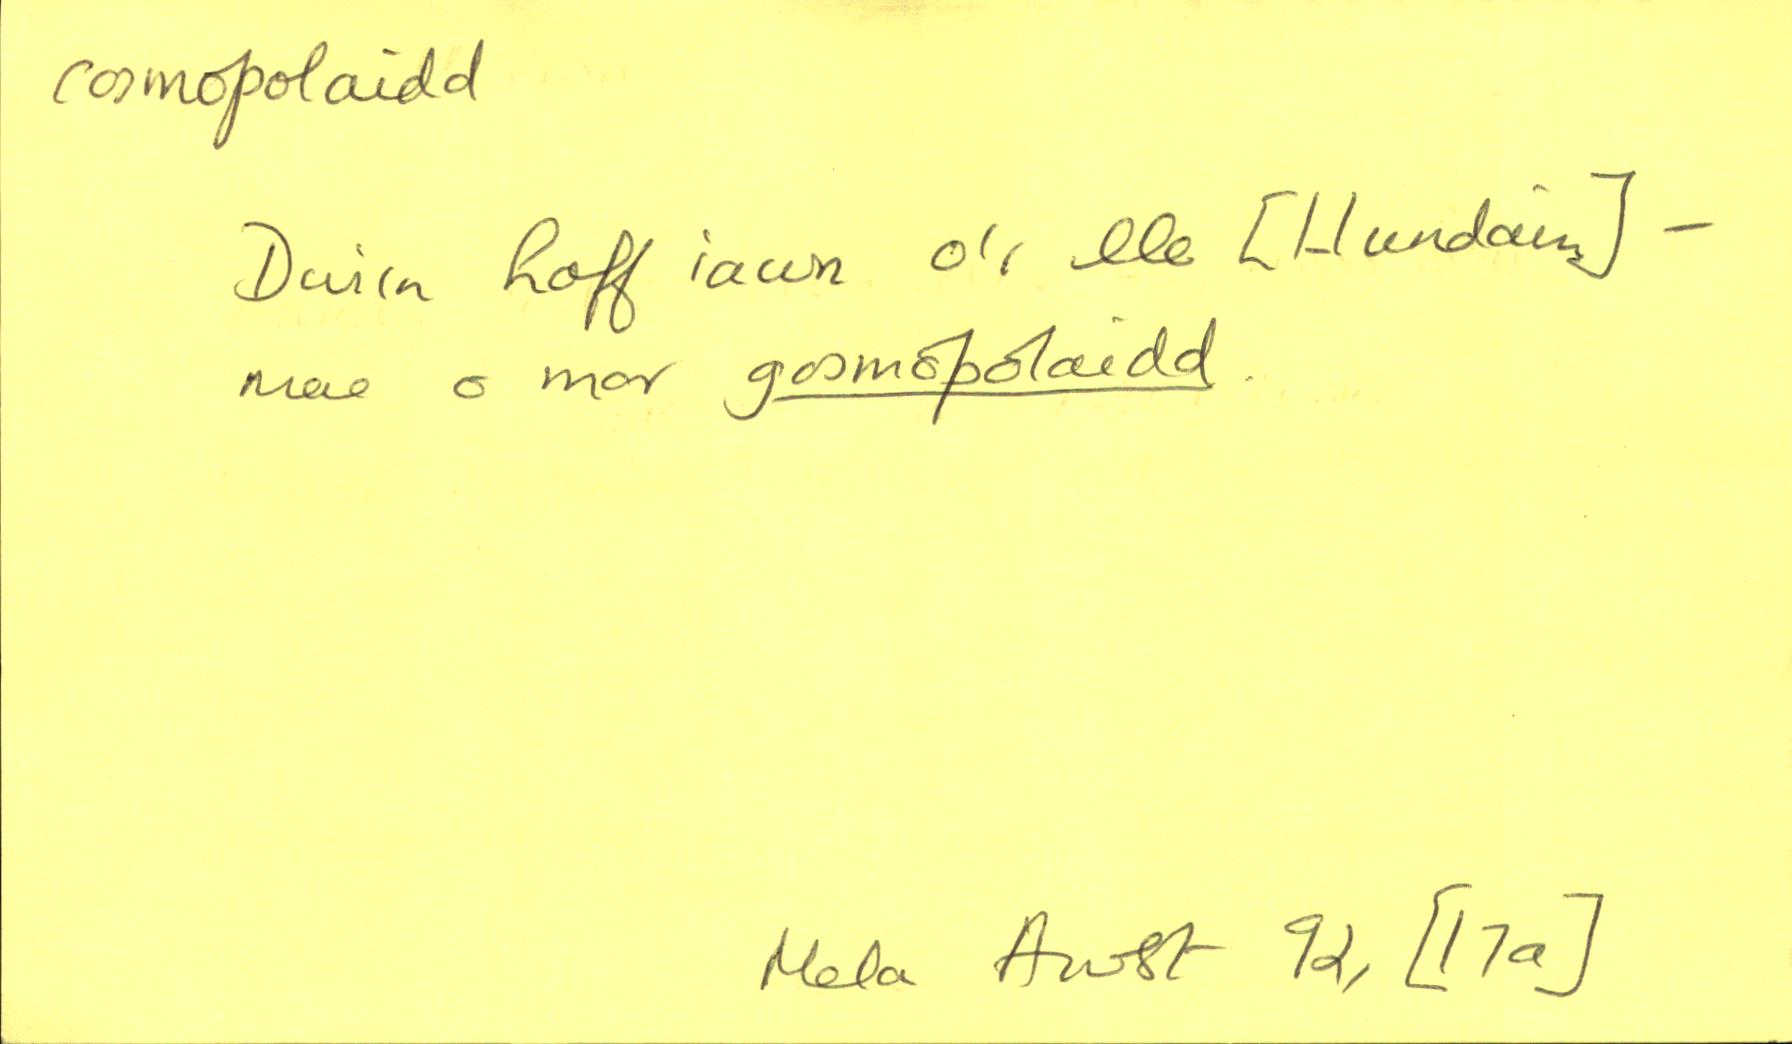 cosmopolaidd
Dwi'n hoff iawn o'r lle [Llundain] –
mae o mor gosmopolaidd.
Mela Awst 92, [17a]